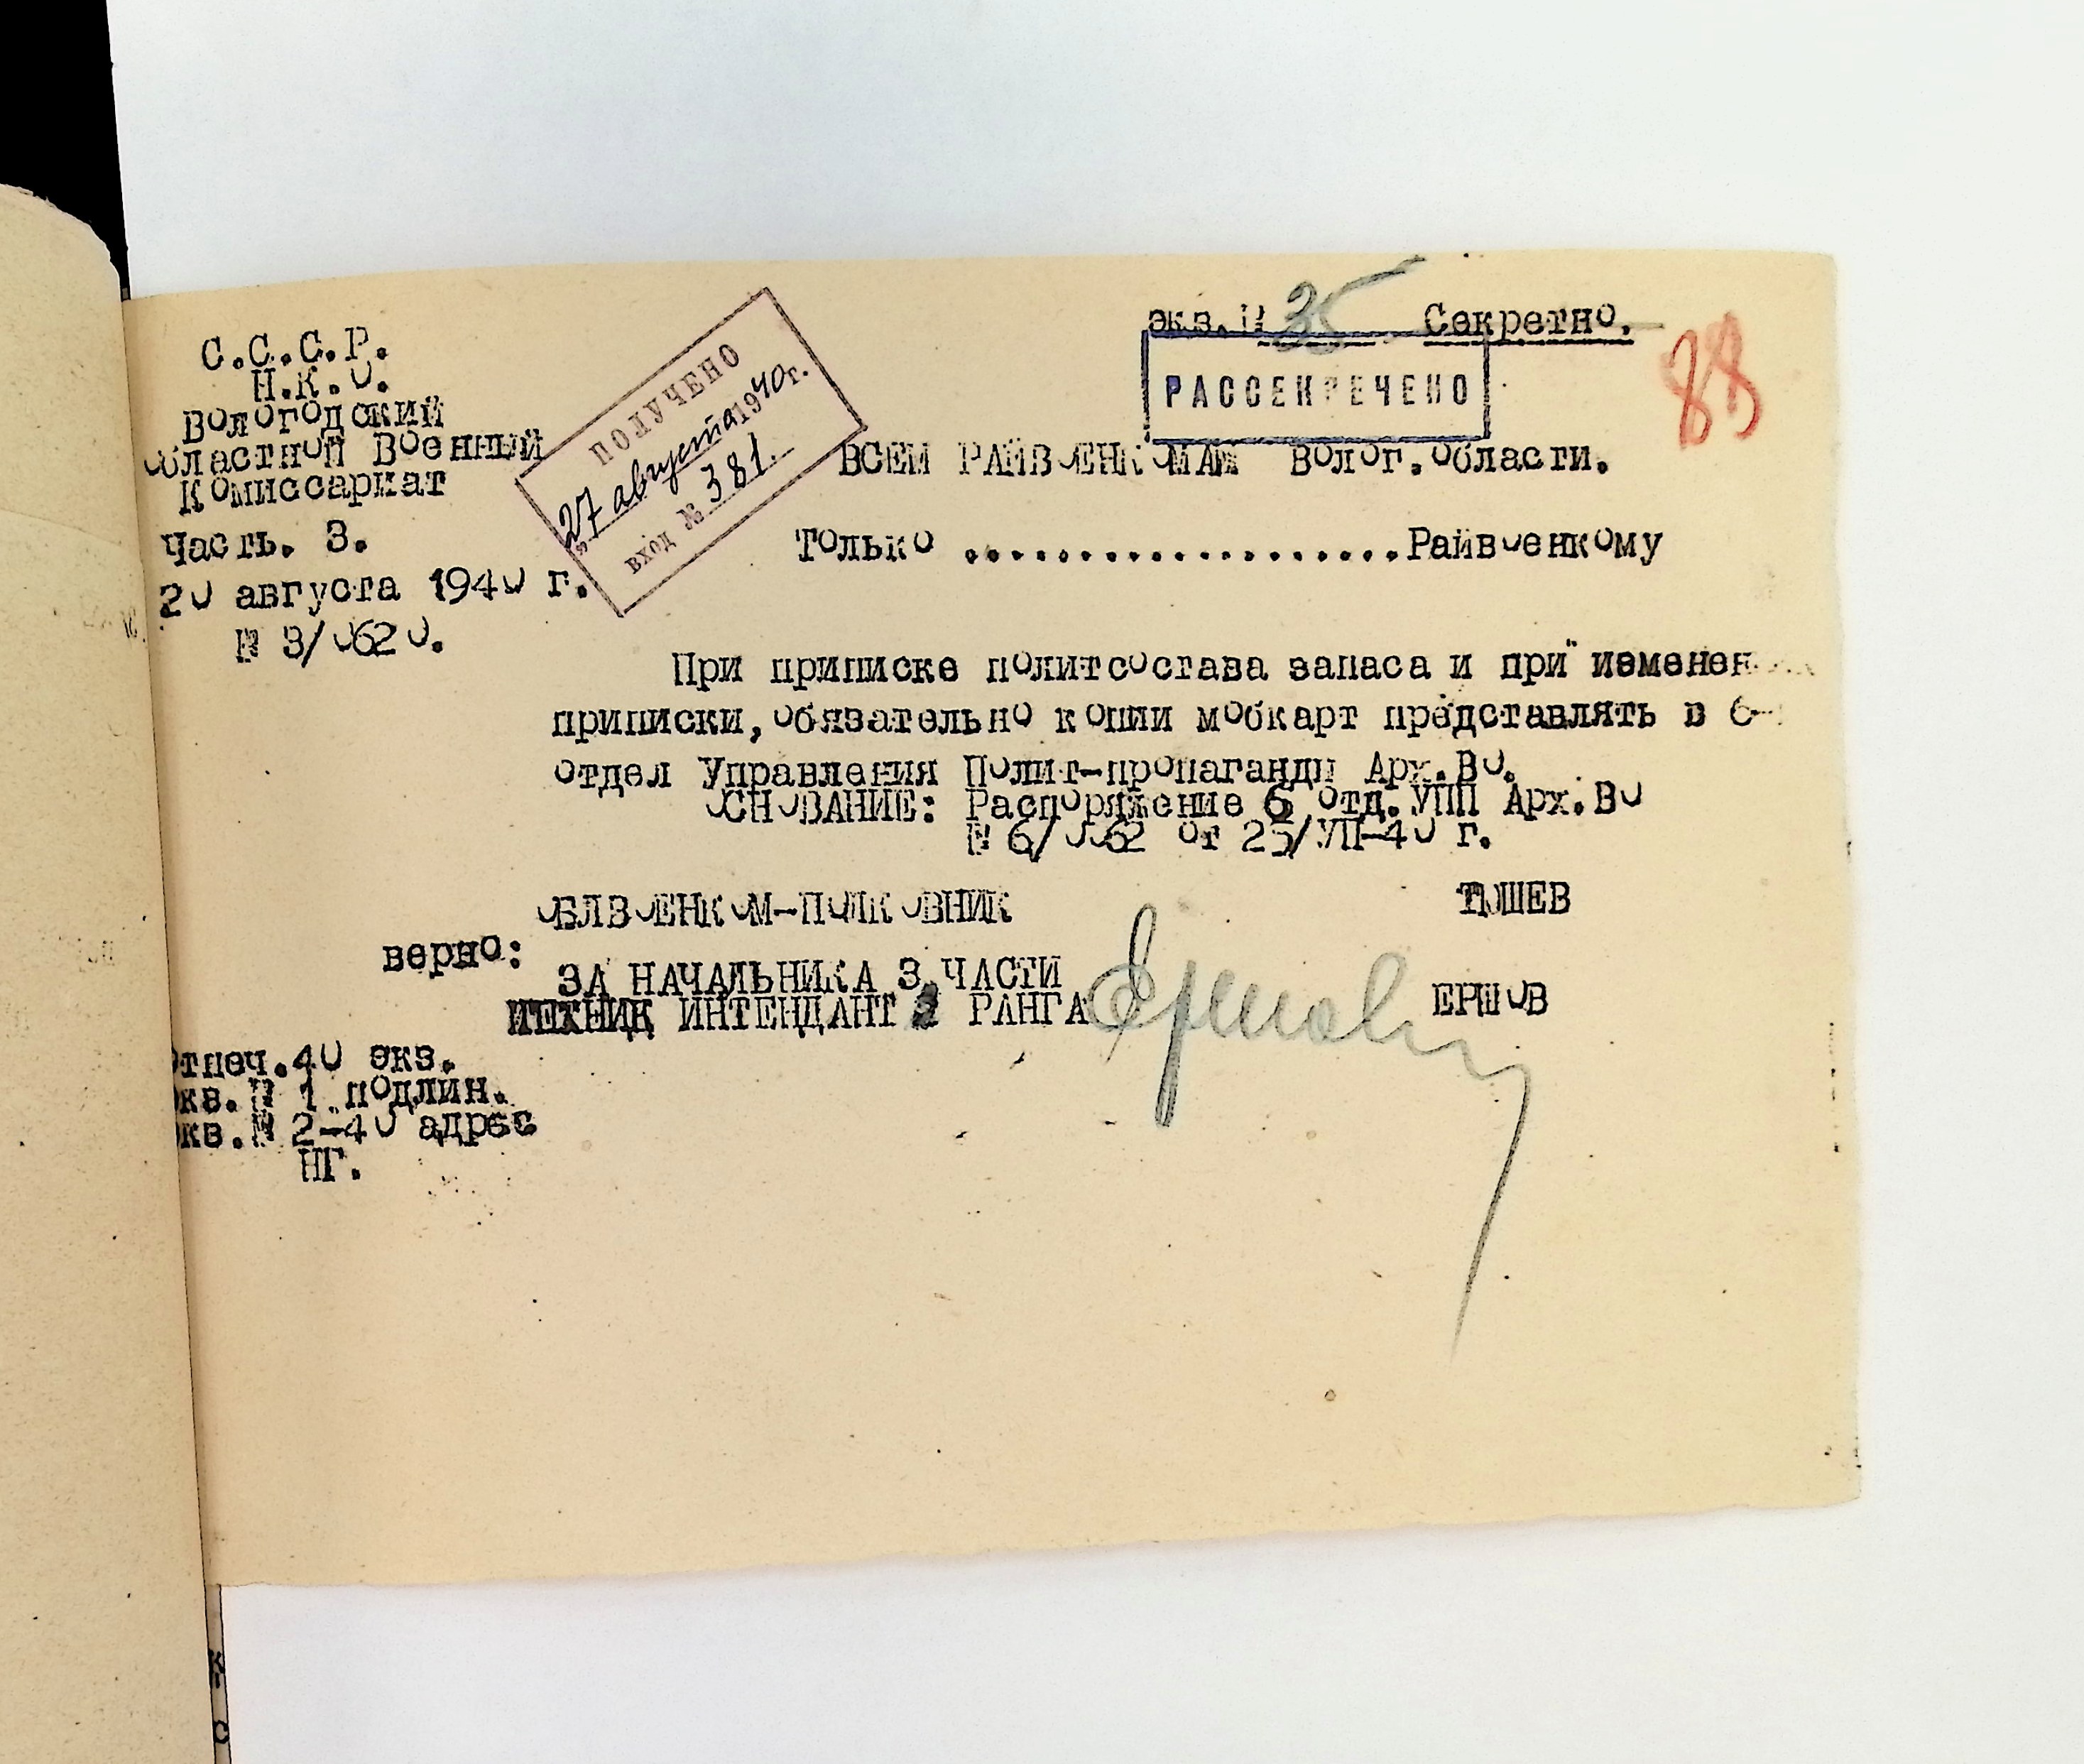 экз. № 35 Секретно.
88
РАССЕКРЕЧЕНО
С.С.С.Р.
Н.К.О.
Вологодский
Областной Военный
Комиссариат
Часть. 3.
20 августа 1940 г.
№ 3/0620.
ПОЛУЧЕНО
"27 августа 1940 г.
ВХОД № 381.
ВСЕМ РАЙВОЕНКОМАМ Волог.области.
Только ...................Райвоенкому
При приписке политсостава запаса и при изменен
приписки, обязательно копии мобкарт представлять в 6-
отдел Управления Полит-пропаганды Арх.ВО.
ОСНОВАНИЕ: Распоряжение 6 отд.УПП Арх.ВО
№ 6/0062 от 25/УП-40 г.
ОБЛВОЕНКОМ-ПОЛКОВНИК
верно:
ЗА НАЧАЛЬНИКА 3 ЧАСТИ
ТЕХНИК ИНТЕНДАНТ 2 РАНГА Ершов ЕРШОВ
Отпеч.40 экз.
Экз.№ 1 подлин.
Экз.№ 2-40 адрес
НГ.
К
С